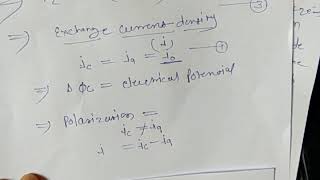 ③
⇒ Exchange current density
(i)
i_c = i_a = i_0 — ④
⇒ Δ Φ_c = electrical Potenial
⇒ Polarization =
i_c ≠ i_a
i = i_c - i_a